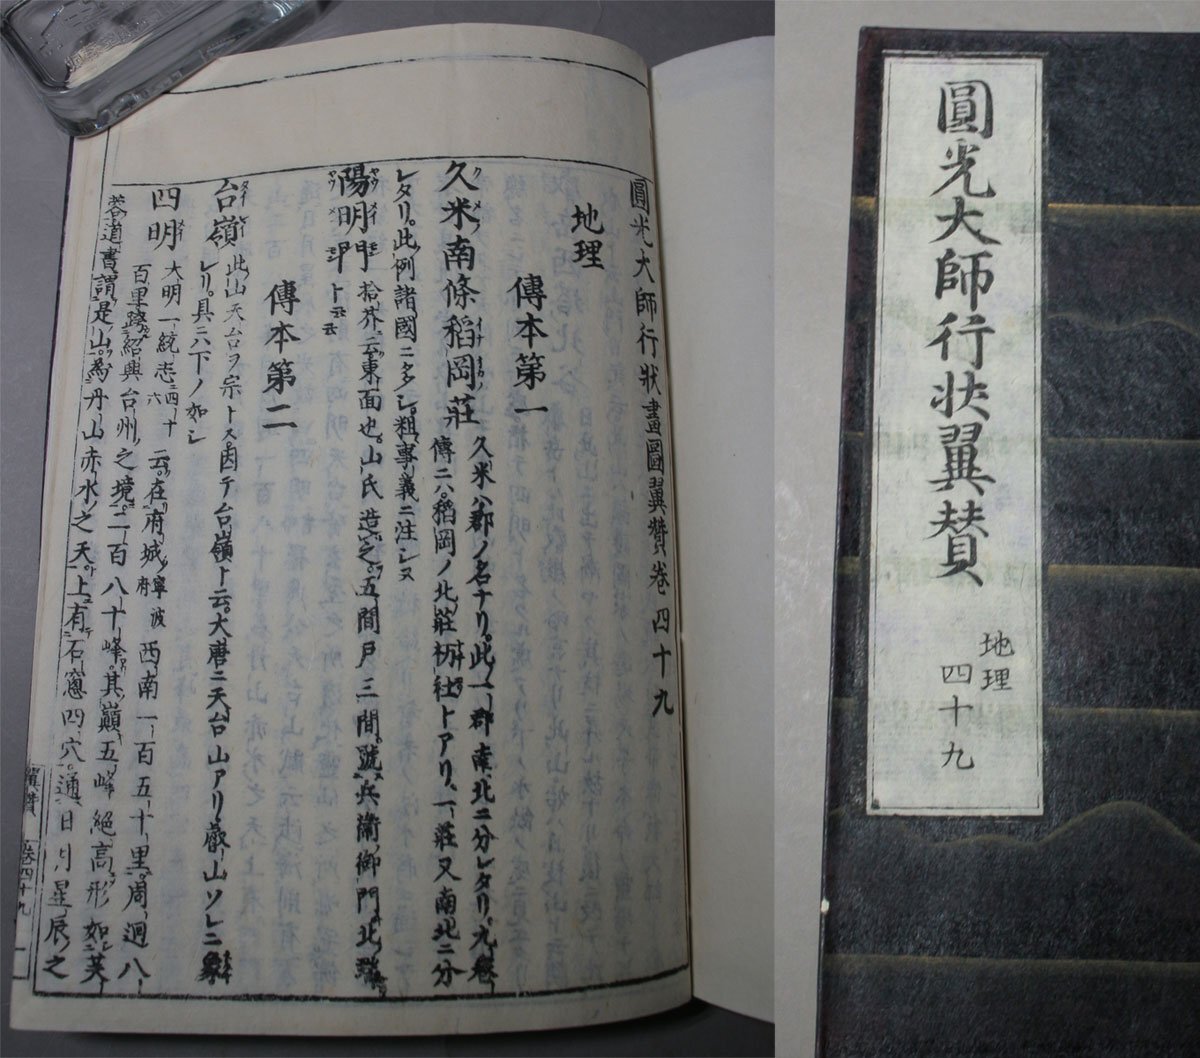 圓光大師行状翼賛
地理
四十九
圓光大師行狀畫圖翼贊卷四十九
地理
傳本第一
久米南條稻岡莊 久米ハ郡ノ名ナリ。此一郡南北ニ分レタリ。九卷
傳ニハ。稻岡ノ北莊栃社トアリ。一莊又南北ニ分
レタリ。此例諸國ニ多シ。粗事義ニ注シヌ
陽明門 拾芥云。東面也。山氏造之。五間戸三間。號兵衞御門北
ト云云
傳本第二
台嶺 此山天台ヲ宗トス。因テ台嶺ト云。大唐ニ天台山アリ。叡山ソレニ象
レリ。具ニ下ノ如シ
四明 大明一統志四十六云。在府城寧波府西南一百五十里。周迴八
百里。跨紹興台州之境。二百八十峰。其巔五峰絶高形如芙
蓉。道書謂是山爲丹山赤水之天。上有石窓四穴。通日月星辰之
翼賛 卷四十九 一